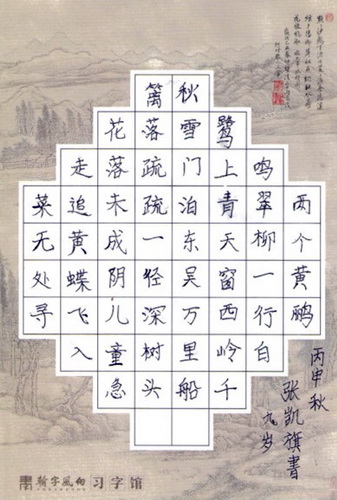 两个黄鹂
鸣翠柳一行白
鹭上青天窗西岭千
秋雪门泊东吴万里船
篱落疏疏一径深树头
花落未成阴儿童急
走追黄蝶飞入
菜无处寻
丙申秋
张凯旗書
九岁
习字馆